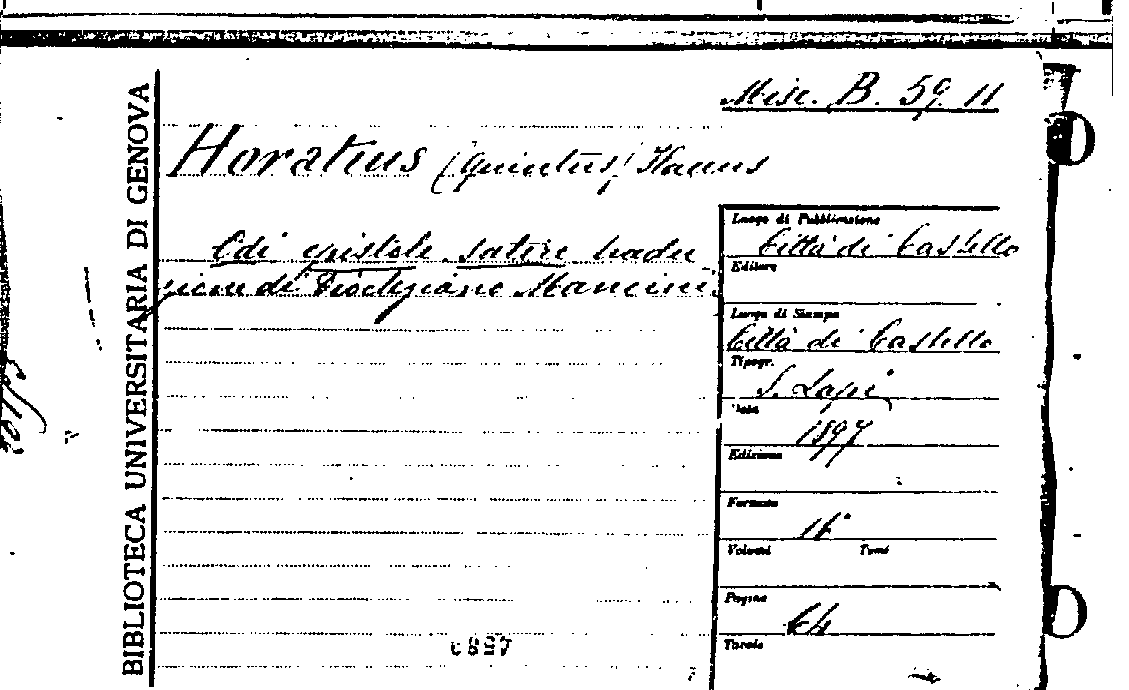 BIBLIOTECA UNIVERSITARIA DI GENOVA
Misc. B. 59. 11
Horatius (Quintus) Flaccus
Odi epistole satire tradu
zione di Diocleziano Mancini
Luogo di Pubblicazione
Città di Castello
Editore
Luogo di Stampa
Città di Castello
Tipogr.
S. Lapi
Data
1897
Edizione
Formato
16°
Volumi Tomi
Pagine
64
Tavole